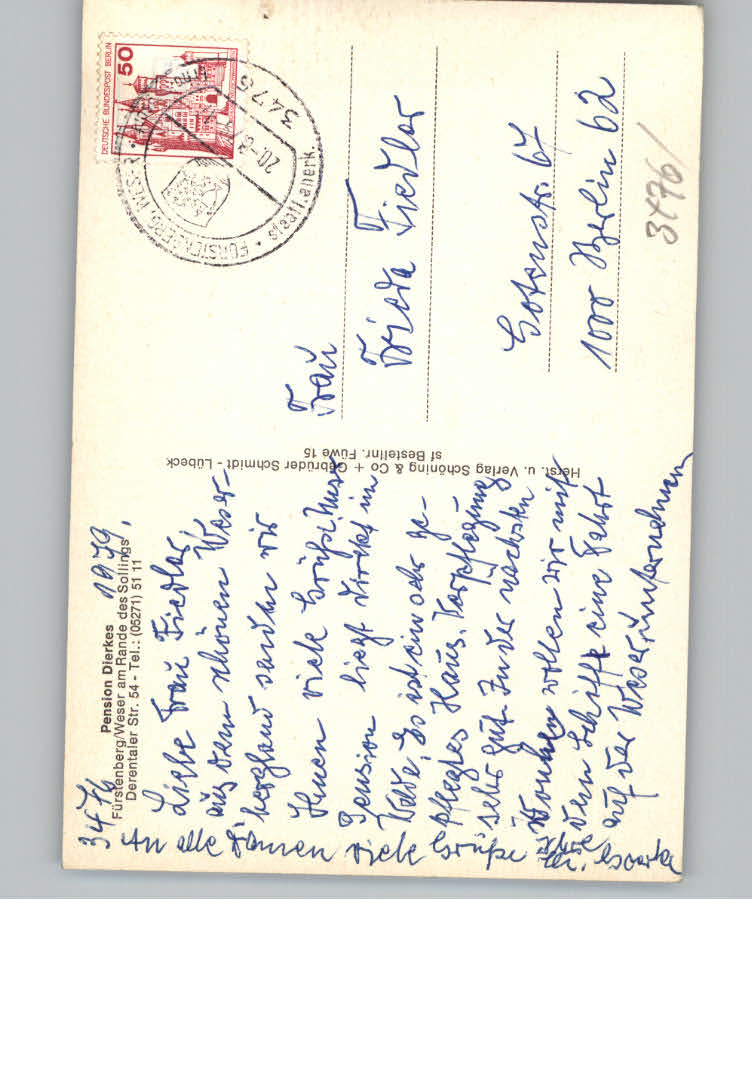 3476
1979.
Pension Dierkes
Fürstenberg/Weser am Rande des Sollings
Derentaler Str. 54 - Tel.: (05271) 51 11
Liebe Frau Fiedler,
aus dem schönen Weser-
bergland senden wir
Ihnen viele Grüße. Unsere
Pension liegt direkt im
Walde, Es ist ein sehr ge-
pflegtes Haus, Verpflegung
sehr gut. In der nächsten
Wochen wollen wir mit
dem Schiff eine Fahrt
auf der Weser unternehmen
An alle Damen viele Grüße Ihre
Herst. u. Verlag Schöning & Co + Gebrüder Schmidt - Lübeck
sf Bestellnr. Füwe 15
DEUTSCHE BUNDESPOST BERLIN
50
3476
FÜRSTENBERG, WESER
20.-8.
Frau
Frieda Fiedler
Gotenstr. 67
1000 Berlin 62
3476/